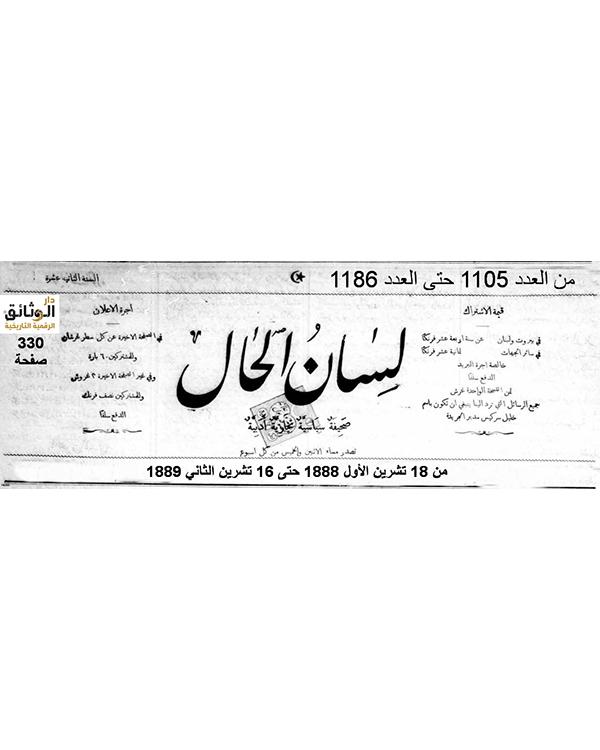 من العدد 1105 حتى العدد 1186
السنة الثانية عشرة
قيمة الاشتراك
في بيروت ولبنان عن سنة اربعة عشر فرنكا
في سائر الجهات ثمانية عشر فرنكا
خالصة اجرة البريد
الدفع سلفا
ثمن النسخة الواحدة غرش
جميع الرسائل التي ترد الينا ينبغي ان تكون باسم
خليل سركيس مدير الجريدة
لسان الحال
صحيفة سياسية تجارية أدبية
تصدر مساء الاثنين والخميس من كل اسبوع
اجرة الاعلان
في الصفحة الاخيرة عن كل سطر غرشان
والمشتركين ٦٠ بارة
وفي غير الصفحة الاخيرة ٣ غروش
والمشتركين نصف فرنك
الدفع سلفا
دار
الوثائق
الرقمية التاريخية
330
صفحة
من 18 تشرين الأول 1888 حتى 16 تشرين الثاني 1889